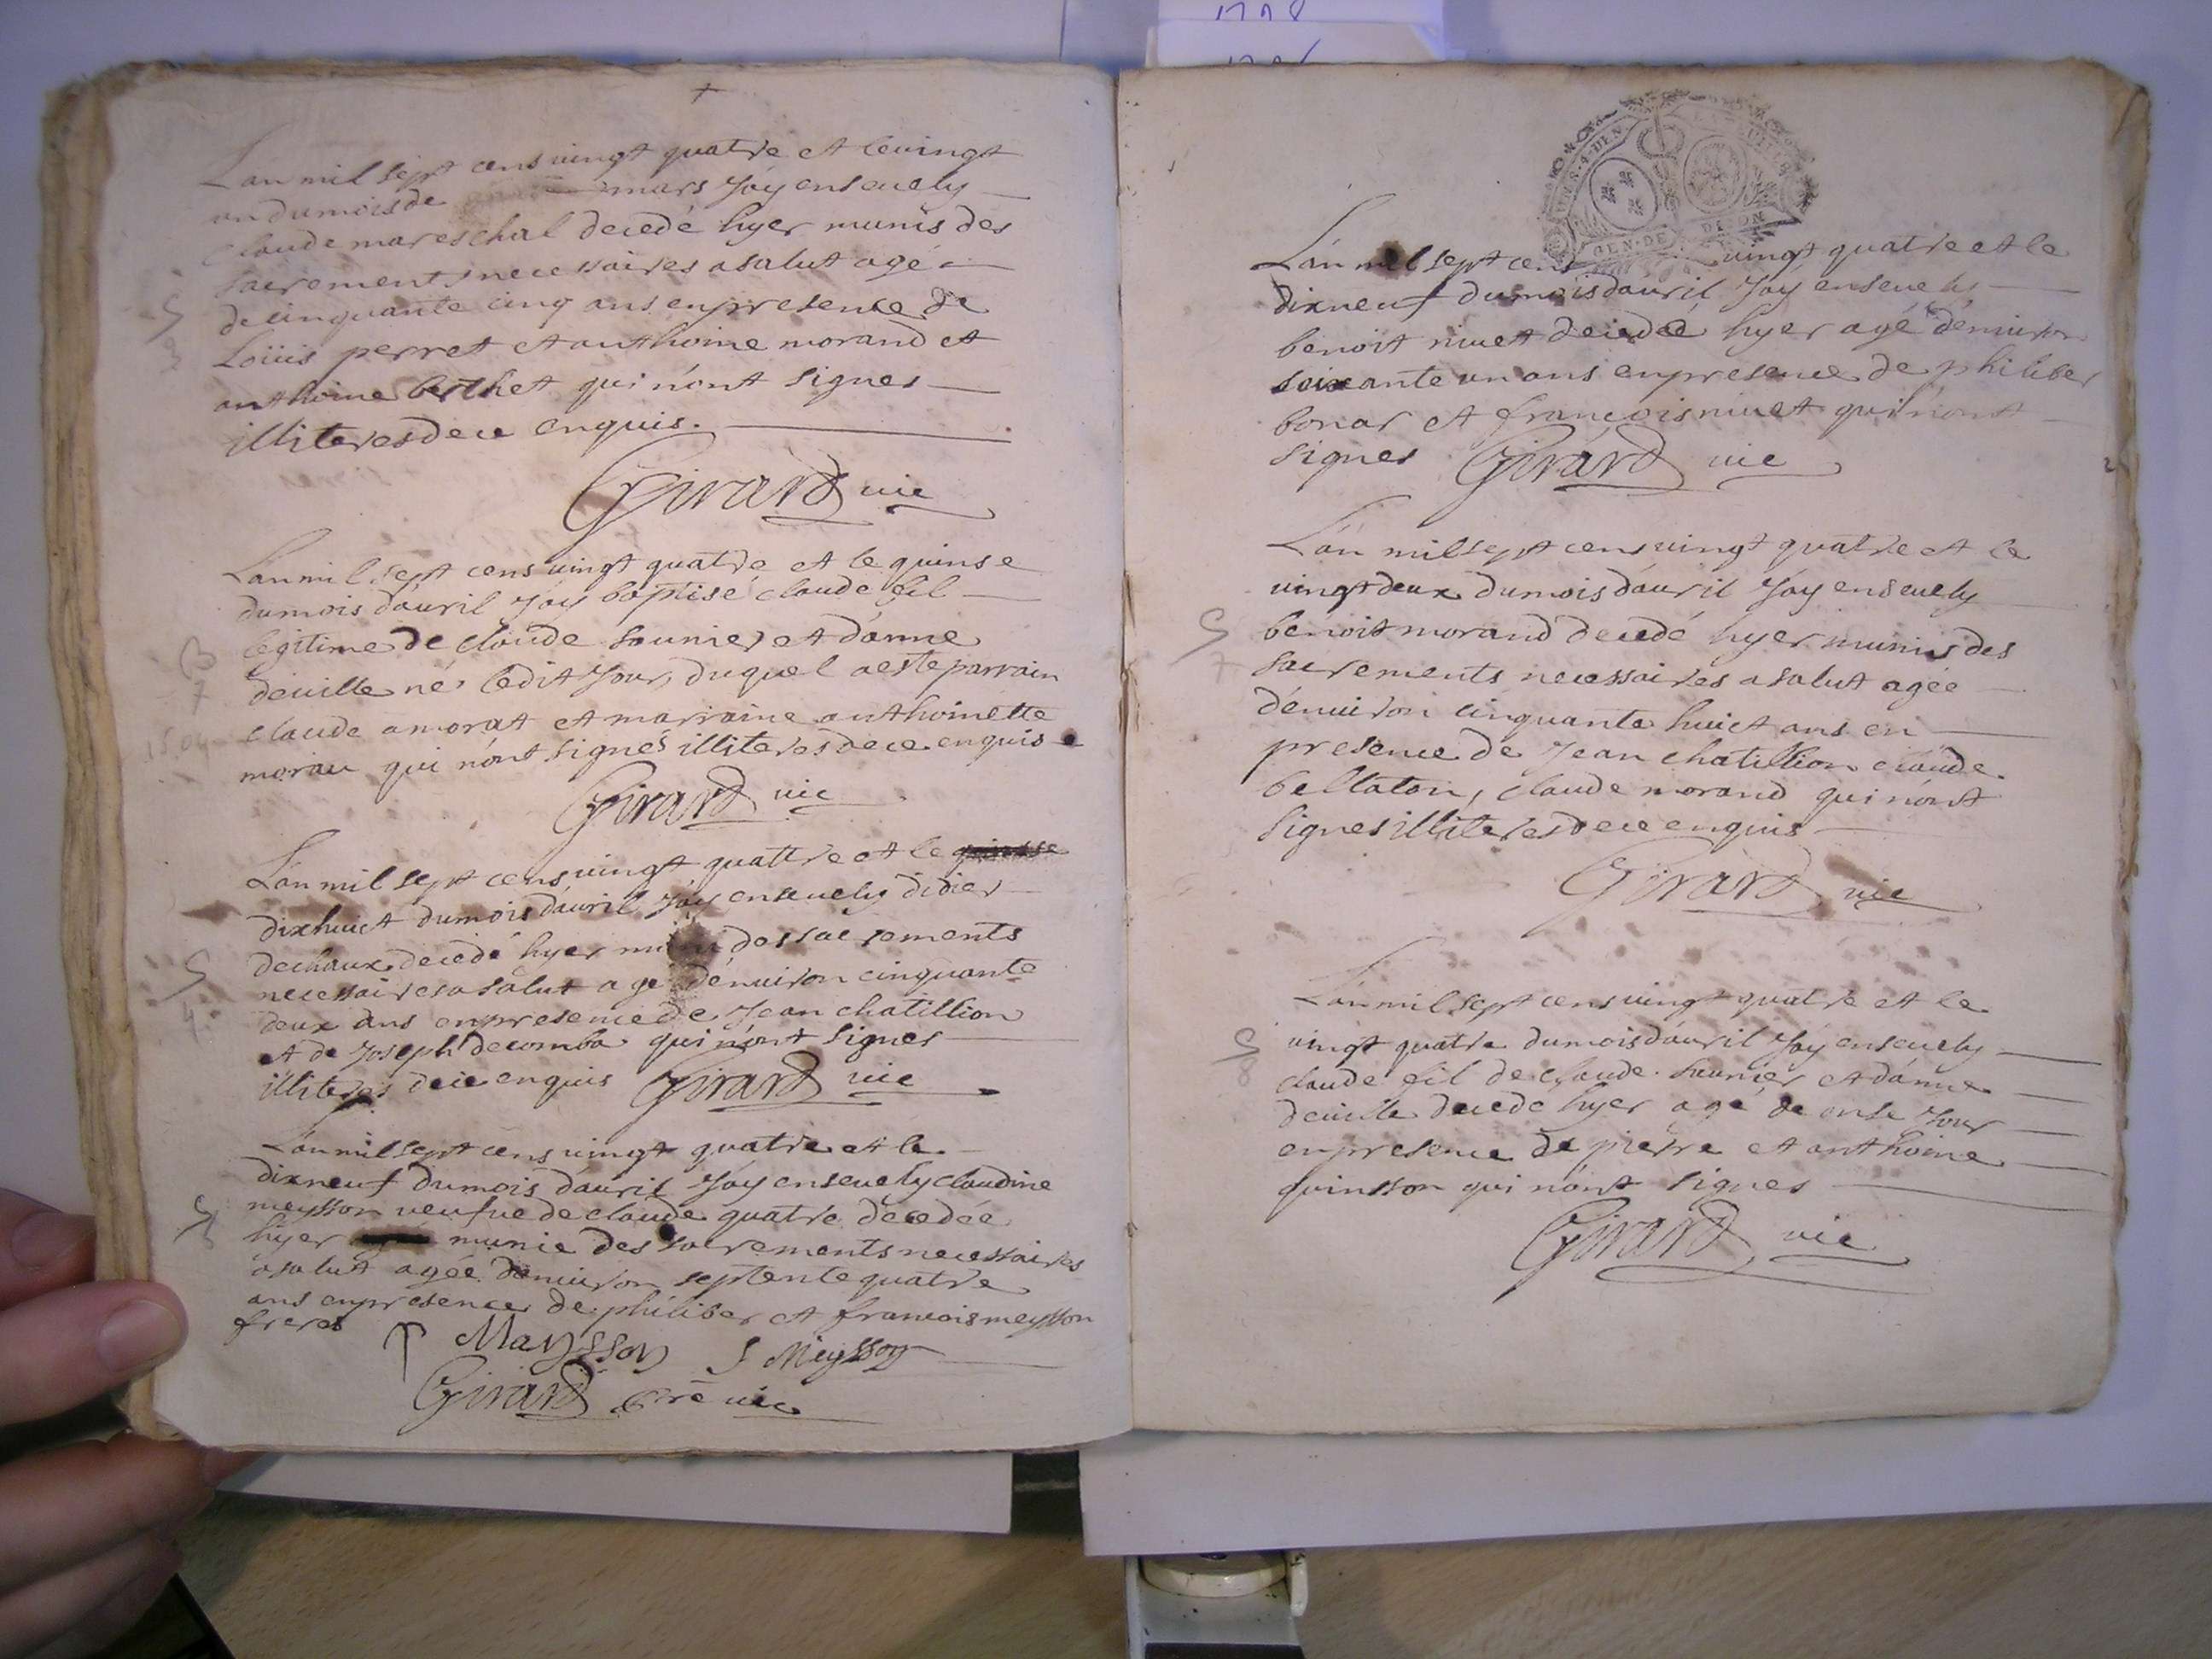 +
L'an mil sept cens vingt quatre et le vingt
un du mois de mars J'ay ensevely
claude mareschal decedé hyer munis des
sacrements necessaires a salut agé
de cinquante cinq ans en presence de
Loüis perret et anthoine morand et
anthoine berthet qui n'ont signes
illiteres de ce enquis.
Girard vic
L'an mil sept cens vingt quatre et le quinse
du mois d'avril J'ay baptisé claude fil
legitime de claude saunier et d'anne
deville né ledit Jour, duquel a este parrain
claude amorat et marraine anthoinette
morau qui n'ont signés illiteres de ce enquis
Girard vic
L'an mil sept cens vingt quattre et le quinsse
dixhuict du mois d'avril J'ay ensevely didier
dechaux decedé hyer munis des sacrements
necessaires a salut agé d'environ cinquante
deux ans en presence de Jean chatillion
et de Joseph decomba qui n'ont signes
illiteres de ce enquis Girard vic
L'an mil sept cens vingt quatre et le
dixneuf du mois d'avril J'ay ensevely claudine
meysson veufve de claude quatre decedée
hyer munie des sacrements necessaires
a salut agée d'environ septente quatre
ans en presence de philiber et francois meysson
freres
Maysson f Meysson
Girard ptre vic
GEN. DE DIJON
L'an mil sept cens vingt quatre et le
dixneuf du mois d'avril J'ay ensevely
benoit nivet decedé hyer agé d'environ
soixante un ans en presence de philiber
bonar et françois nivet qui n'ont
signes Girard vic
L'an mil sept cens vingt quatre et le
vingt deux du mois d'avril J'ay ensevely
benoit morand decedé hyer munis des
sacrements necessaires a salut agée
d'environ cinquante huict ans en
presence de Jean chatillion claude
beltaton, claude morand qui n'ont
signes illiteres de ce enquis
Girard vic
L'an mil sept cens vingt quatre et le
vingt quatre du mois d'avril J'ay ensevely
claude fil de claude saunier et d'anne
deville decede hyer agé de onse Jour
en presence de pierre et anthoine
quinsson qui n'ont signes
Girard vic